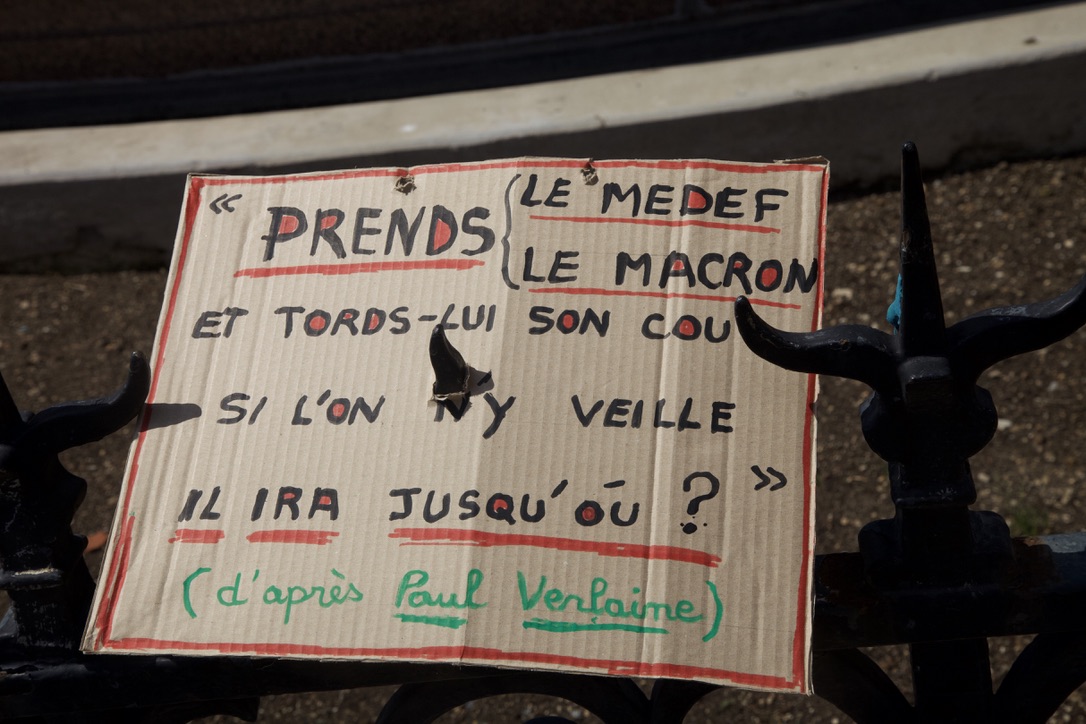 « PRENDS { LE MEDEF
LE MACRON
ET TORDS-LUI SON COU
SI L'ON N'Y VEILLE
IL IRA JUSQU'OÙ ? »
(d'après Paul Verlaine)